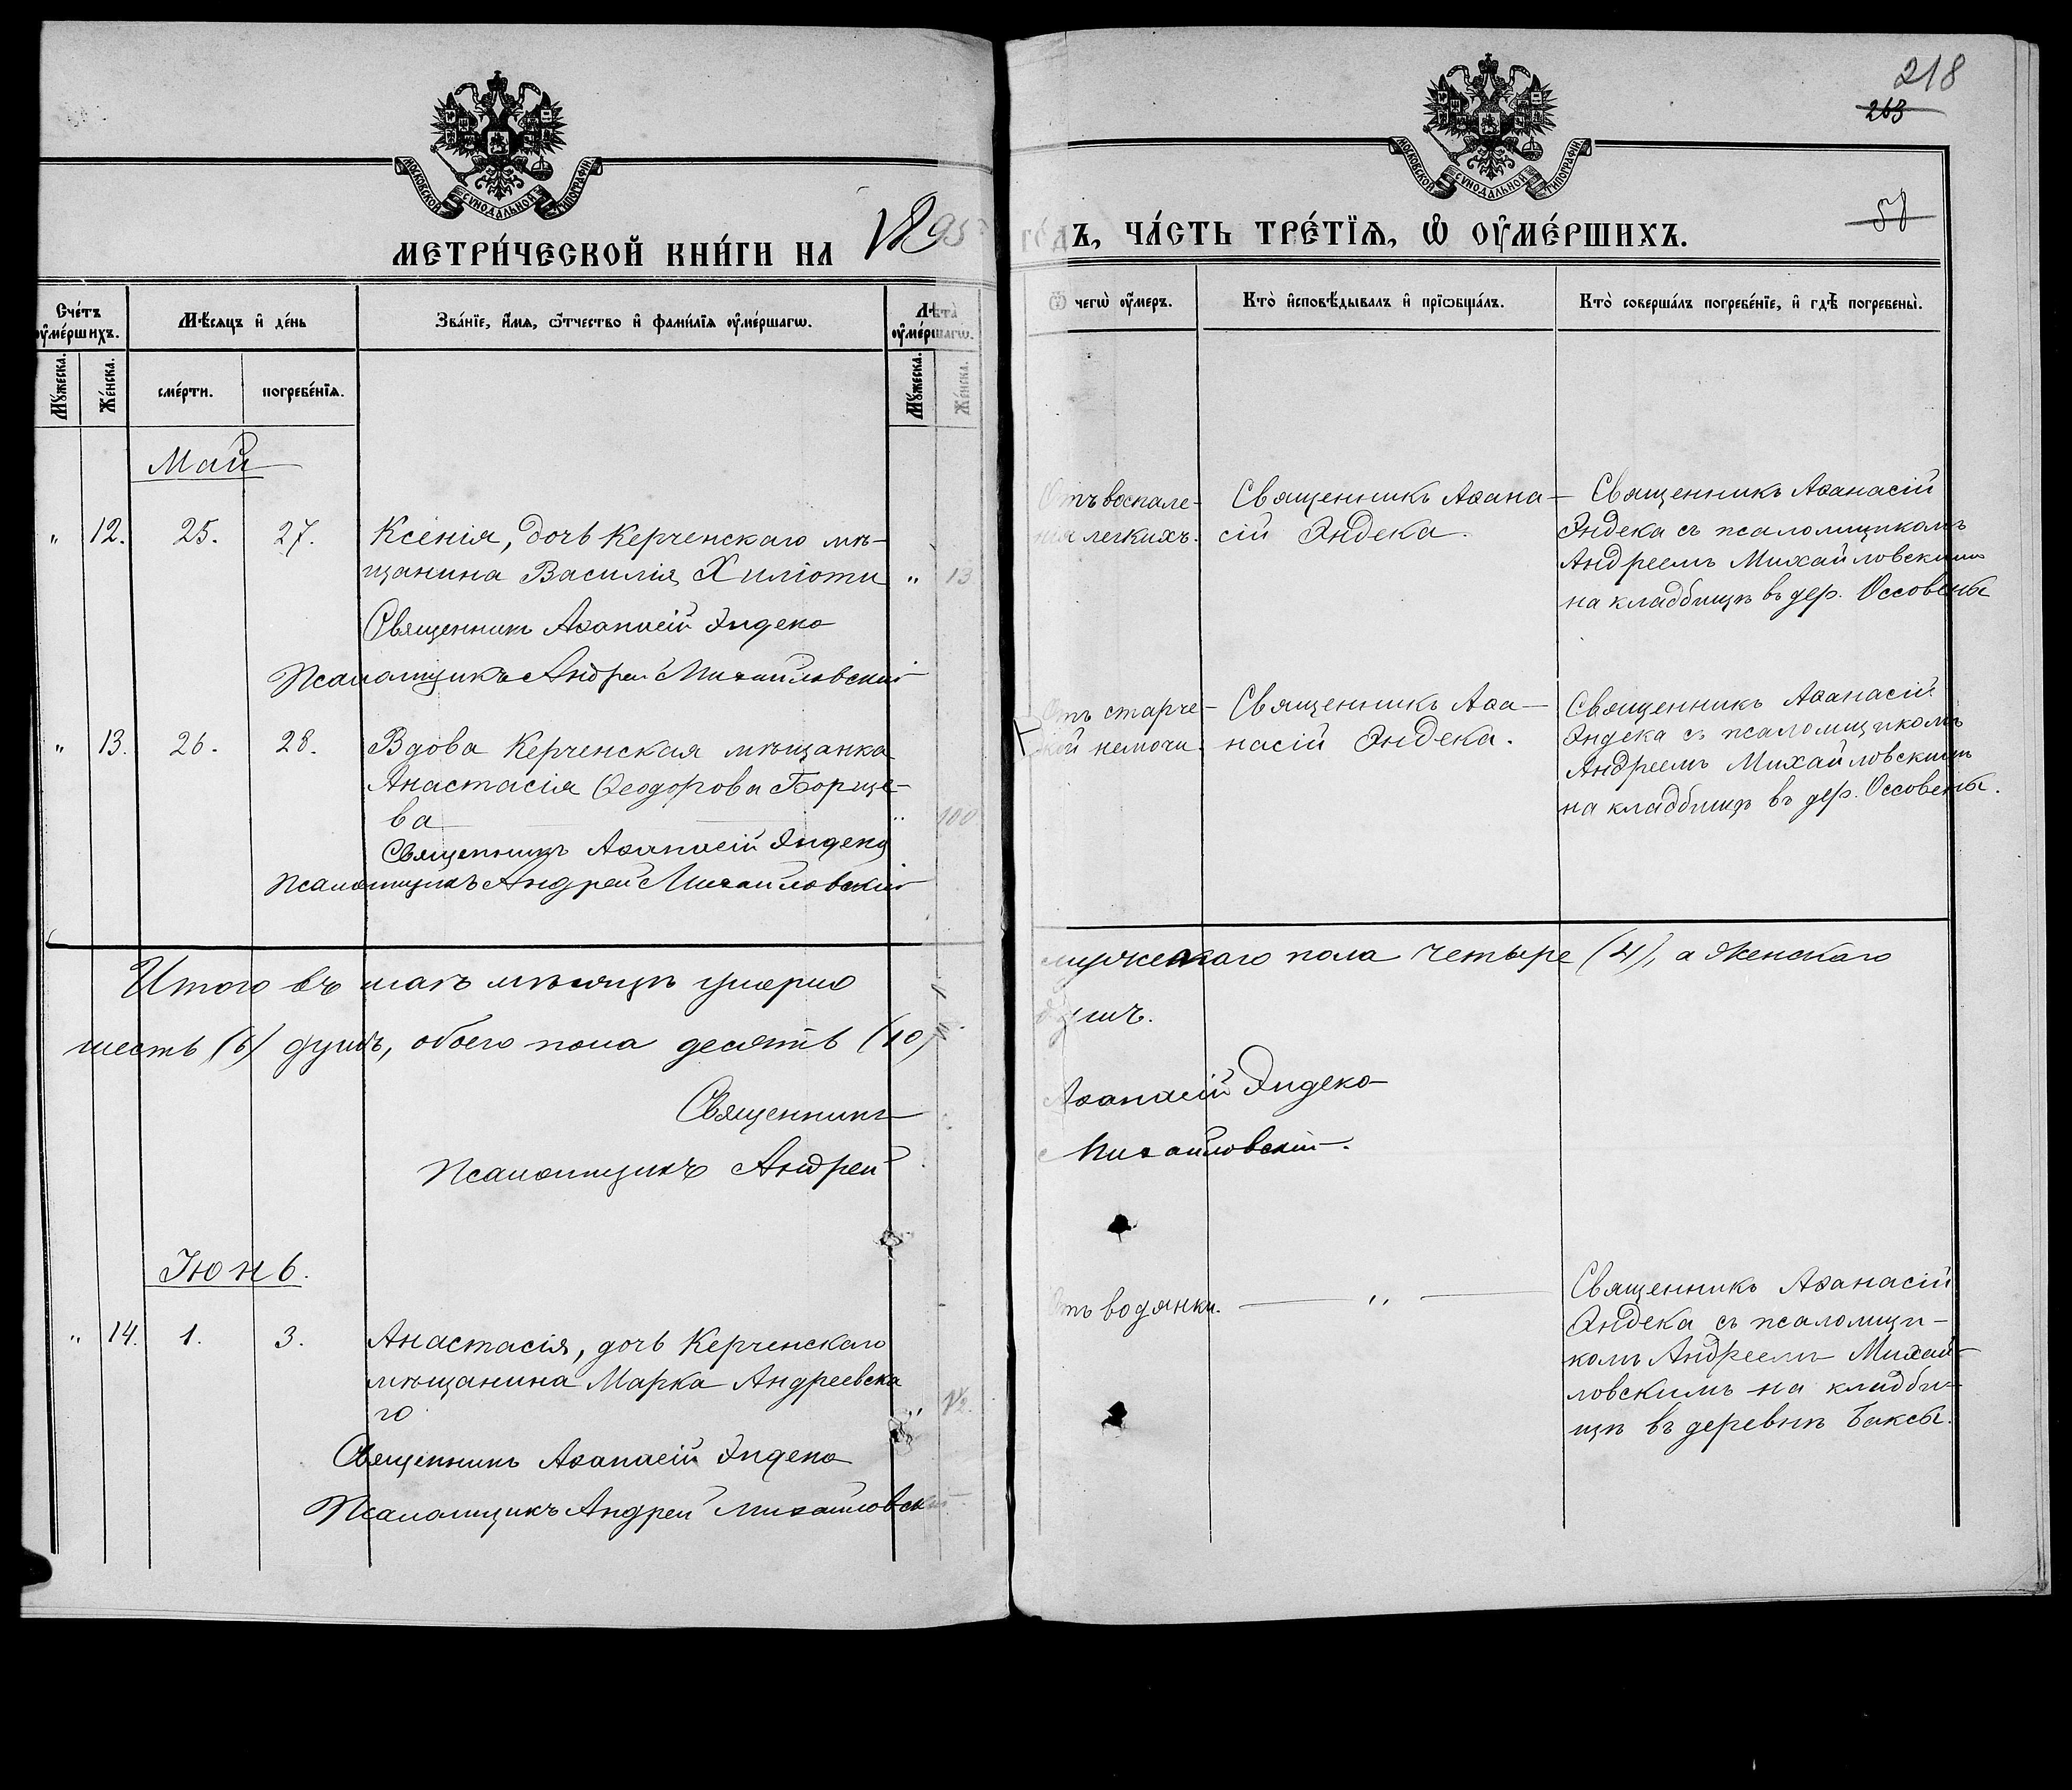 218
263
58
МОСКОВСКОЙ СѴНОДАЛЬНОЙ ТИПОГРАФІИ
МОСКОВСКОЙ СѴНОДАЛЬНОЙ ТИПОГРАФІИ
МЕТРИ́ЧЕСКОЙ КНИ́ГИ НА 1895
го́дъ, ЧА́СТЬ ТРЕ́ТЇѦ, Ѽ ОУ҆МЕ́РШИХЪ.
Сче́тъ оу҆ме́ршихъ.
Мѣ́сѧцъ и҆ де́нь
Зва́нїе, и҆́мѧ, ѻ҆́тчество и҆ фами́лїѧ оу҆ме́ршагѡ.
Лѣ́та̀ оу҆ме́ршагѡ.
Ѿ чегѡ̀ оу҆́меръ.
Кто̀ и҆сповѣ́дывалъ и҆ прїѡбща́лъ.
Кто̀ соверша́лъ погребе́нїе, и҆ гдѣ̀ погребены̀.
Мꙋ́жеска.
Же́нска.
сме́рти.
погребе́нїѧ.
Мꙋ́жеска.
Же́нска.
Май
" 12. 25. 27. Ксенія, дочь Керченскаго мѣ-
щанина Василія Хиліоти " 13
Священникъ Аѳанасій Эндека
Псаломщикъ Андрей Михайловскій
Отъ воспале-
нія легкихъ.
Священникъ Аѳана-
сій Эндека.
Священникъ Аѳанасій
Эндека съ псаломщикомъ
Андреемъ Михайловскимъ
на кладбищѣ въ дер. Оссовены
" 13. 26. 28. Вдова Керченская мѣщанка
Анастасія Ѳеодорова Борще-
ва " 100
Священникъ Аѳанасій Эндека
Псаломщикъ Андрей Михайловскій
Отъ старче-
ской немочи.
Священникъ Аѳа-
насій Эндека.
Священникъ Аѳанасій
Эндека съ псаломщикомъ
Андреемъ Михайловскимъ
на кладбищѣ въ дер. Оссовены.
Итого въ маѣ мѣсяцѣ умерло мужескаго пола четыре (4), а женскаго
шесть (6) душъ, обоего пола десять (10) душъ.
Священникъ Аѳанасій Эндека
Псаломщикъ Андрей Михайловскій.
Іюнь.
" 14. 1. 3. Анастасія, дочь Керченскаго
мѣщанина Марка Андреевска
го " 1/2.
Священникъ Аѳанасій Эндека
Псаломщикъ Андрей Михайловскій
Отъ водянки.
"
Священникъ Аѳанасій
Эндека съ псаломщи-
комъ Андреемъ Михай-
ловскимъ на кладби-
щѣ въ деревнѣ Баксы.